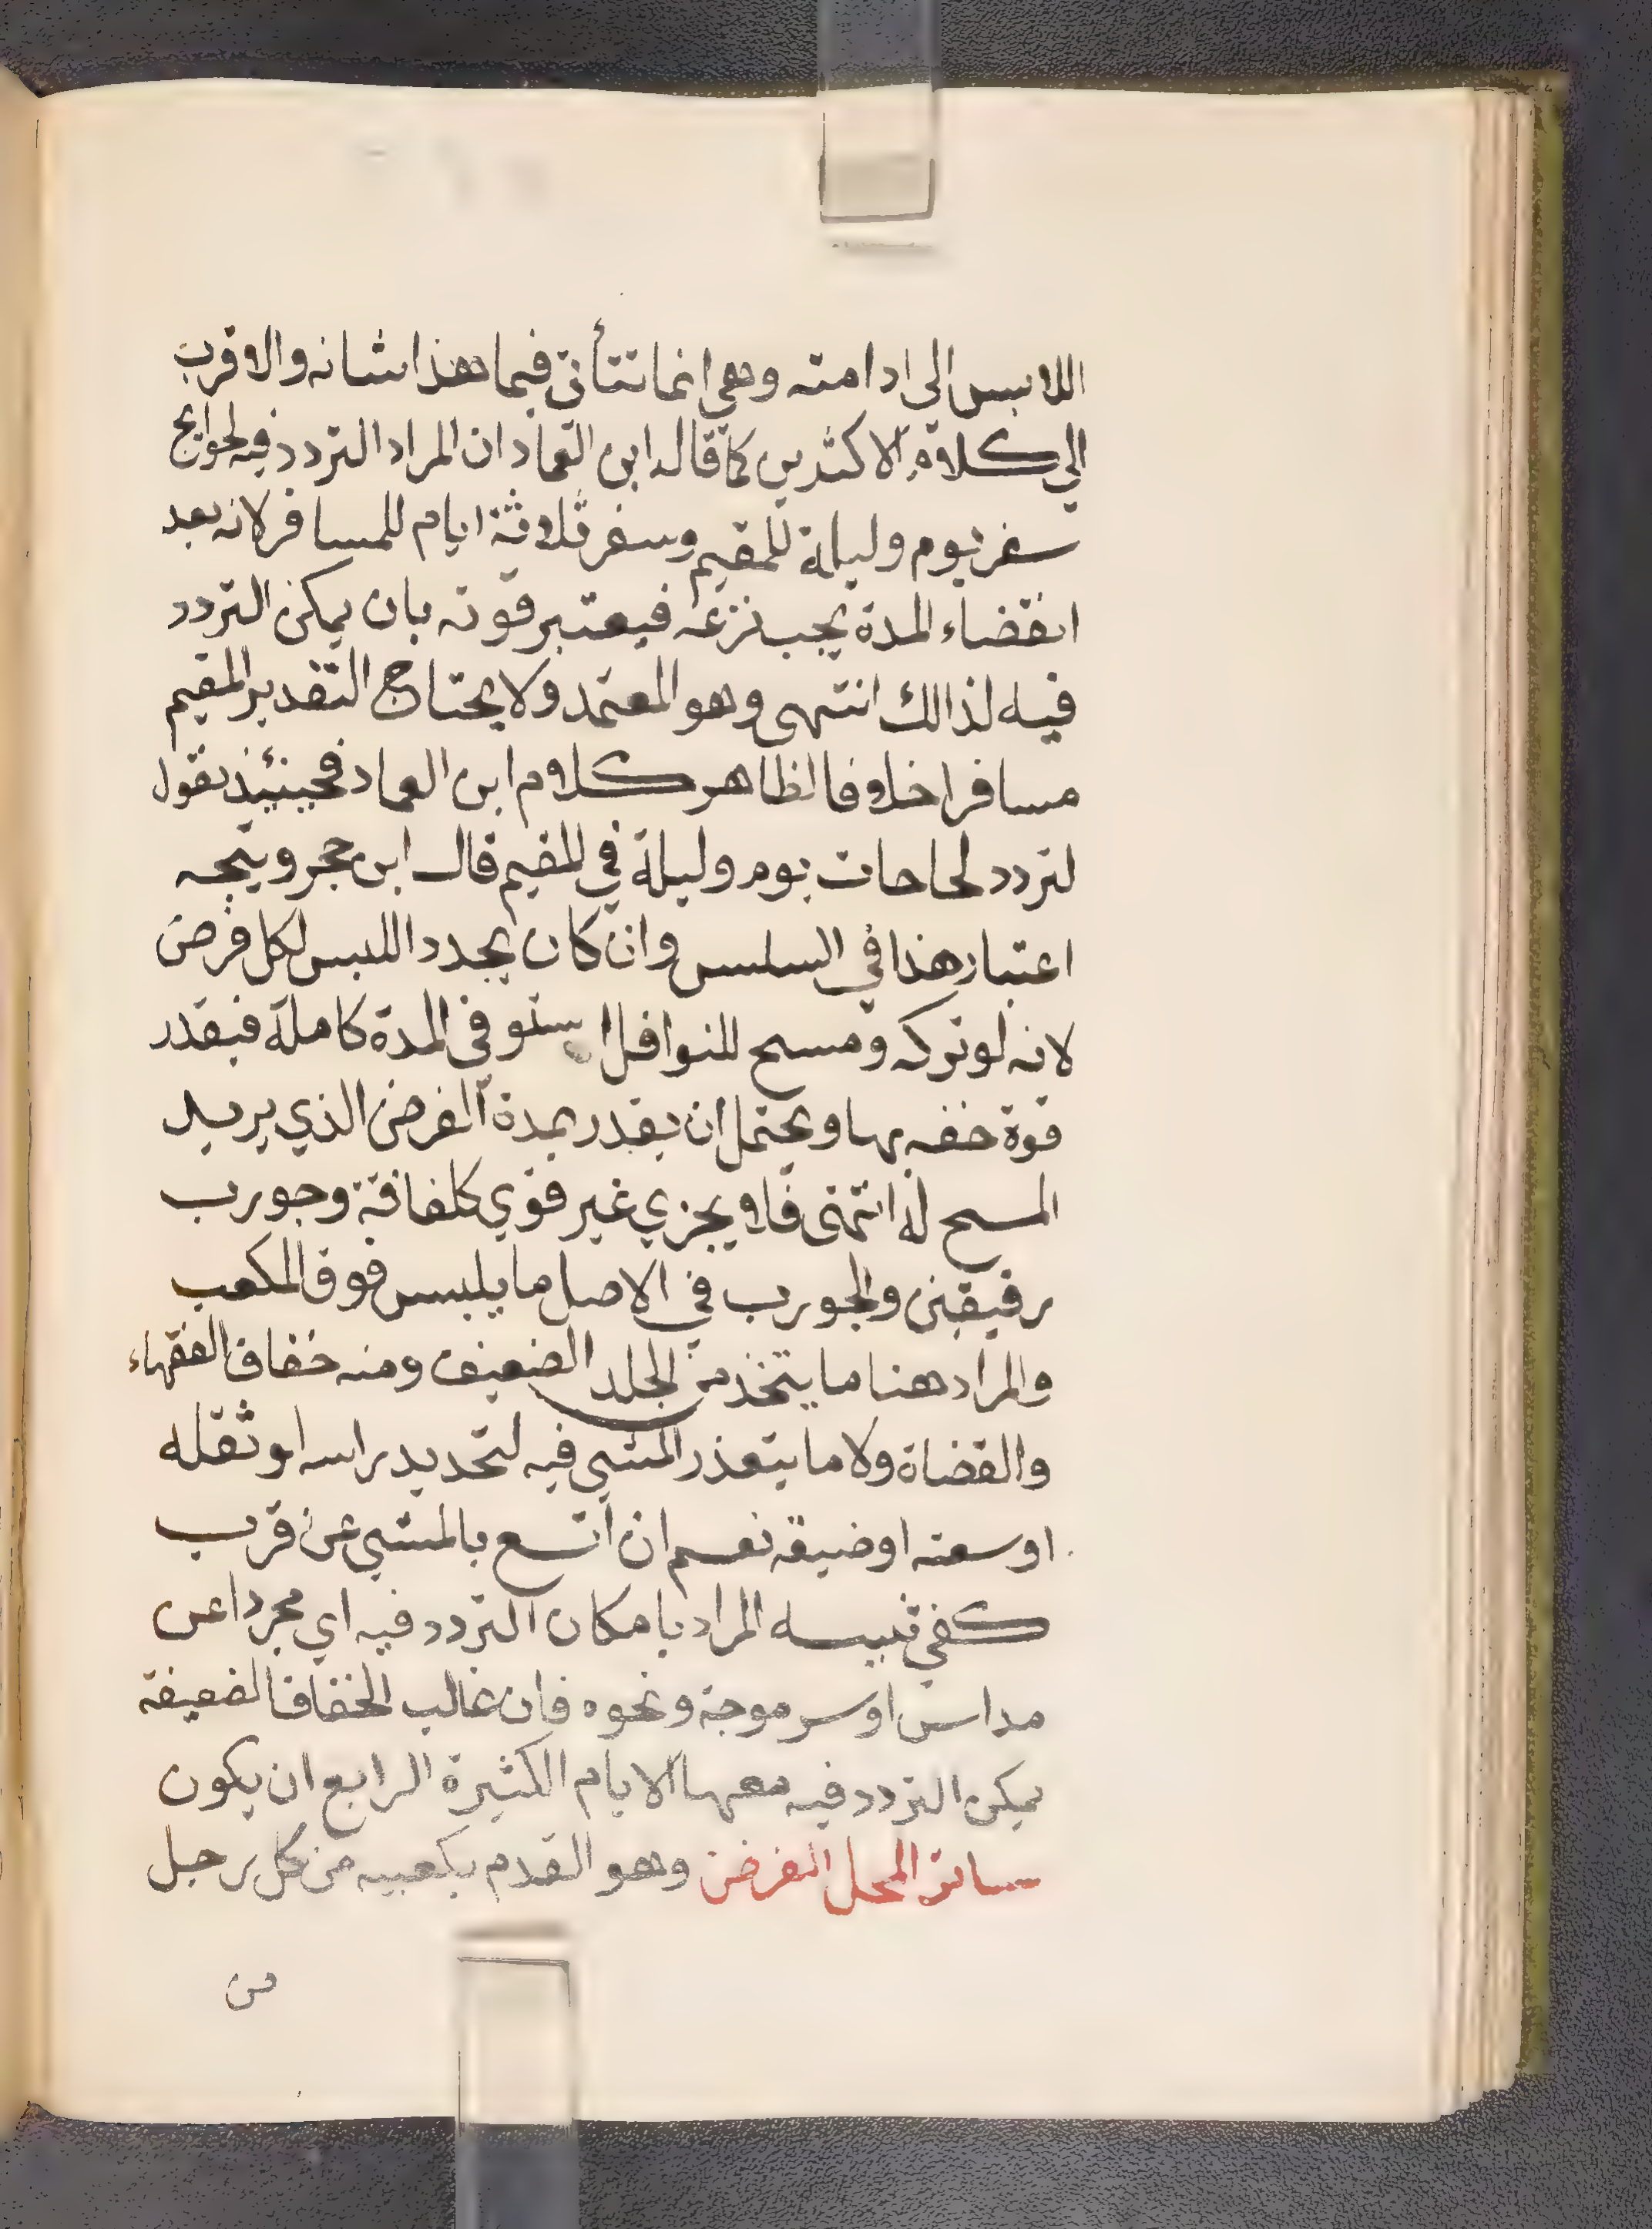 اللابس الى ادامته وهي انما تتأتى فيما هذا شانه والاقرب
الي كلام الاكثرين كما قاله ابن العماد ان المراد التردد فيه لحوايج
سفر يوم وليلة للمقيم وسفر ثلاثة ايام للمسافر لانه بعد
انقضاء المدة يجب نزعه فيعتبر قوته بان يمكن التردد
فيه لذالك انتهى وهو المعتمد ولا يحتاج التقدير المقيم
مسافرا خلافا لظاهر كلام ابن العماد فحينئذ نقول
لتردد لحاجات يوم وليلة في للمقيم قال ابن حجر ويتجه
اعتبار هذا في السلس وان كان يجدد اللبس لكل فرض
لانه لو تركه ومسح للنوافل استوفى المدة كاملة فيقدر
قوة خفه بها ويحتمل ان يقدر بمدة الفرض الذي يريد
المسح له انتهى فلا يجزي غير قوي كلفافة وجورب
رقيقين والجورب في الاصل ما يلبس فوق المكعب
والمراد هنا ما يتخذ من الجلد الضعيف ومنه خفاف الفقهاء
والقضاة ولا ما يتعذر المشي فيه لتحديد راسه او ثقله
او سعته او ضيقه نعم ان اتسع بالمشي عن قرب
كفي تنبيه المراد بامكان التردد فيه اي مجردا عن
مداس او سرموجة ونحوه فان غالب الخفاف الضعيفة
يمكن التردد فيه معها الايام الكثيرة الرابع ان يكون
ساتر المحل الفرض وهو القدم بكعبيه من كل رجل
من